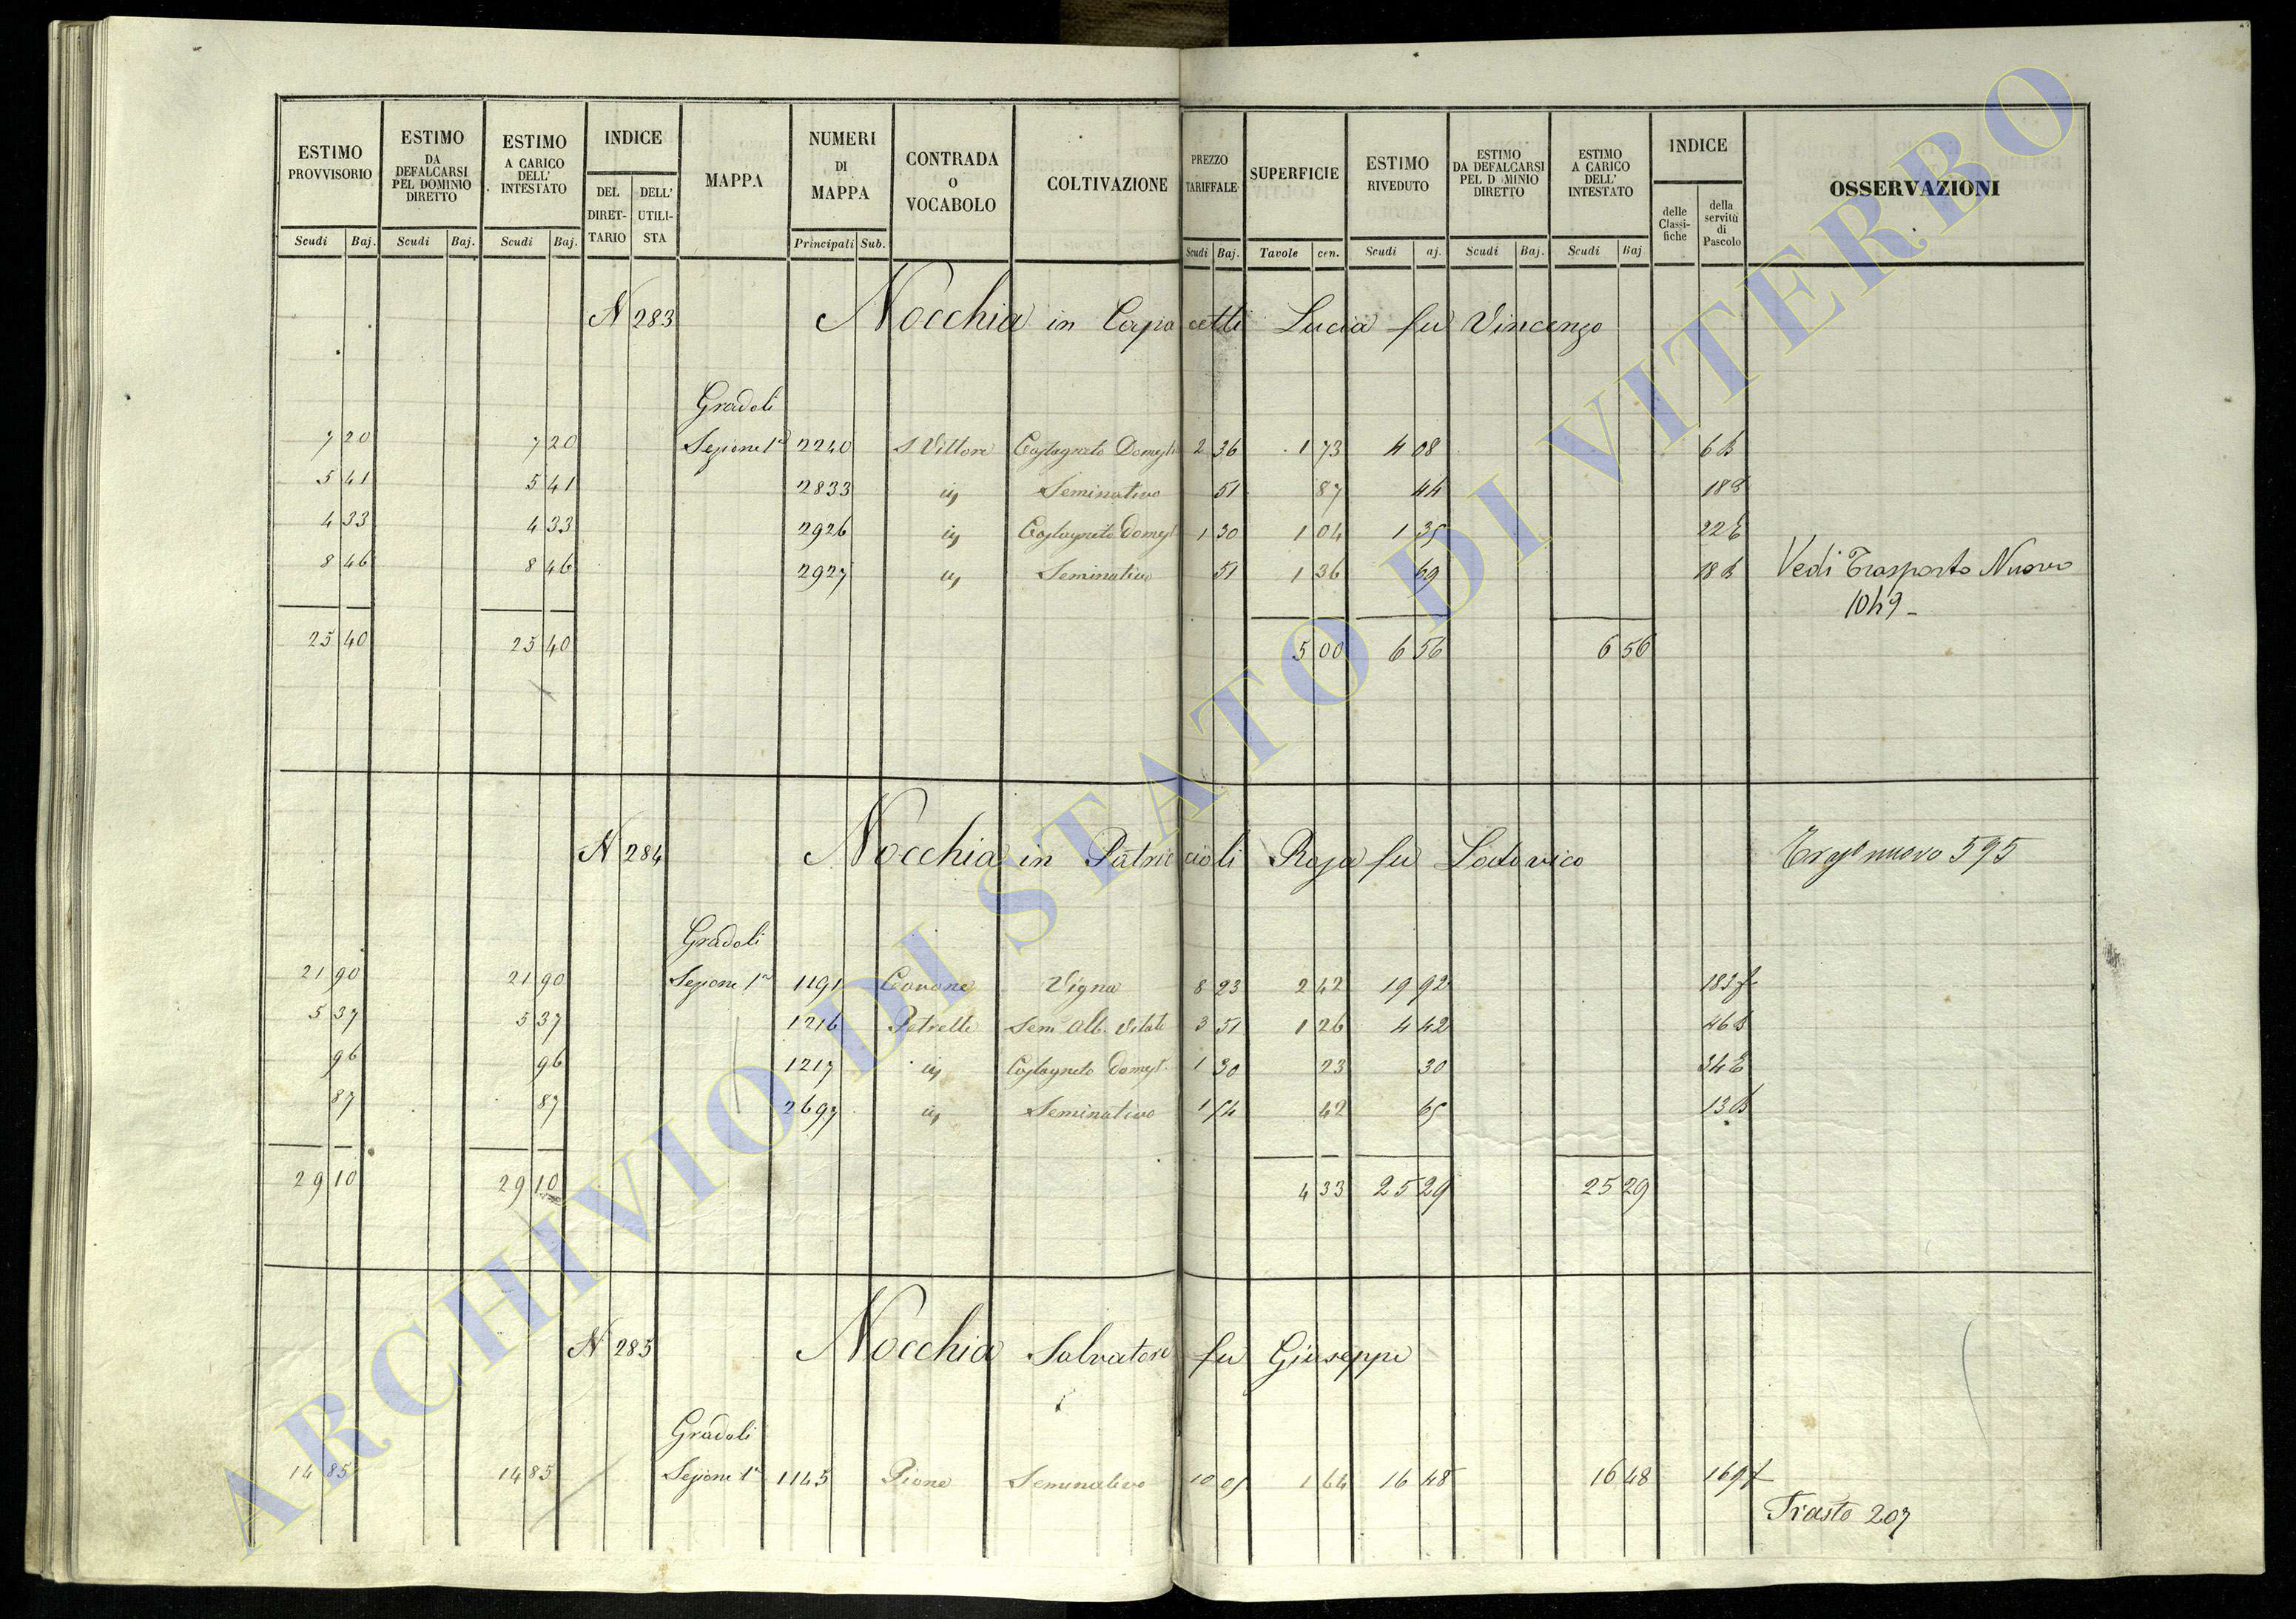 ESTIMO PROVVISORIO | ESTIMO DA DEFALCARSI PEL DOMINIO DIRETTO | ESTIMO A CARICO DELL' INTESTATO | INDICE | MAPPA | NUMERI DI MAPPA | CONTRADA O VOCABOLO | COLTIVAZIONE | PREZZO TARIFFALE | SUPERFICIE | ESTIMO RIVEDUTO | ESTIMO DA DEFALCARSI PEL D MINIO DIRETTO | ESTIMO A CARICO DELL' INTESTATO | INDICE | OSSERVAZIONI
DEL DIRETTARIO | DELL' UTILISTA | delle Classifiche | della servitù di Pascolo
Scudi | Baj. | Scudi | Baj. | Scudi | Baj. | Principali | Sub. | Scudi | Baj. | Tavole | cen. | Scudi | aj. | Scudi | Baj. | Scudi | Baj
N 283 Nocchia in Capacetti Lucia fu Vincenzo
Gradoli
7 20 | 7 20 | Sezione 1ª | 2240 | S Vittore | Castagneto Domest | 2 36 | 1 73 | 4 08 | 6 B
5 41 | 5 41 | 2833 | | Seminativo | 51 | 87 | 44 | 18 B
4 33 | 4 33 | 2926 | | Castagneto Domest | 1 30 | 1 04 | 1 35 | 22 E
8 46 | 8 46 | 2927 | | Seminativo | 51 | 1 36 | 69 | 18 B | Vedi Trasporto Nuovo
1049
25 40 | 25 40 | 5 00 | 6 56 | 6 56
N 284 Nocchia in Patriccioli Rosa fu Lodovico | nuovo 595
Gradoli
21 90 | 21 90 | Sezione 1ª | 1191 | Cavone | Vigna | 8 23 | 2 42 | 19 92 | 183 f
5 37 | 5 37 | 1216 | Petrelle | Sem Alb. Vitato | 3 51 | 1 26 | 4 42 | 46 B
96 | 96 | 1217 | | Castagneto Domest. | 1 30 | 23 | 30 | 34 E
87 | 87 | 2697 | | Seminativo | 1 54 | 42 | 65 | 13 B
29 10 | 29 10 | 4 33 | 25 29 | 25 29
N 285 Nocchia Salvatore fu Giuseppe
Gradoli
14 85 | 14 85 | Sezione 1ª | 1145 | Piane | Seminativo | 10 05 | 1 64 | 16 48 | 16 48 | 169 f
Trasto 207
ARCHIVIO DI STATO DI VITERBO